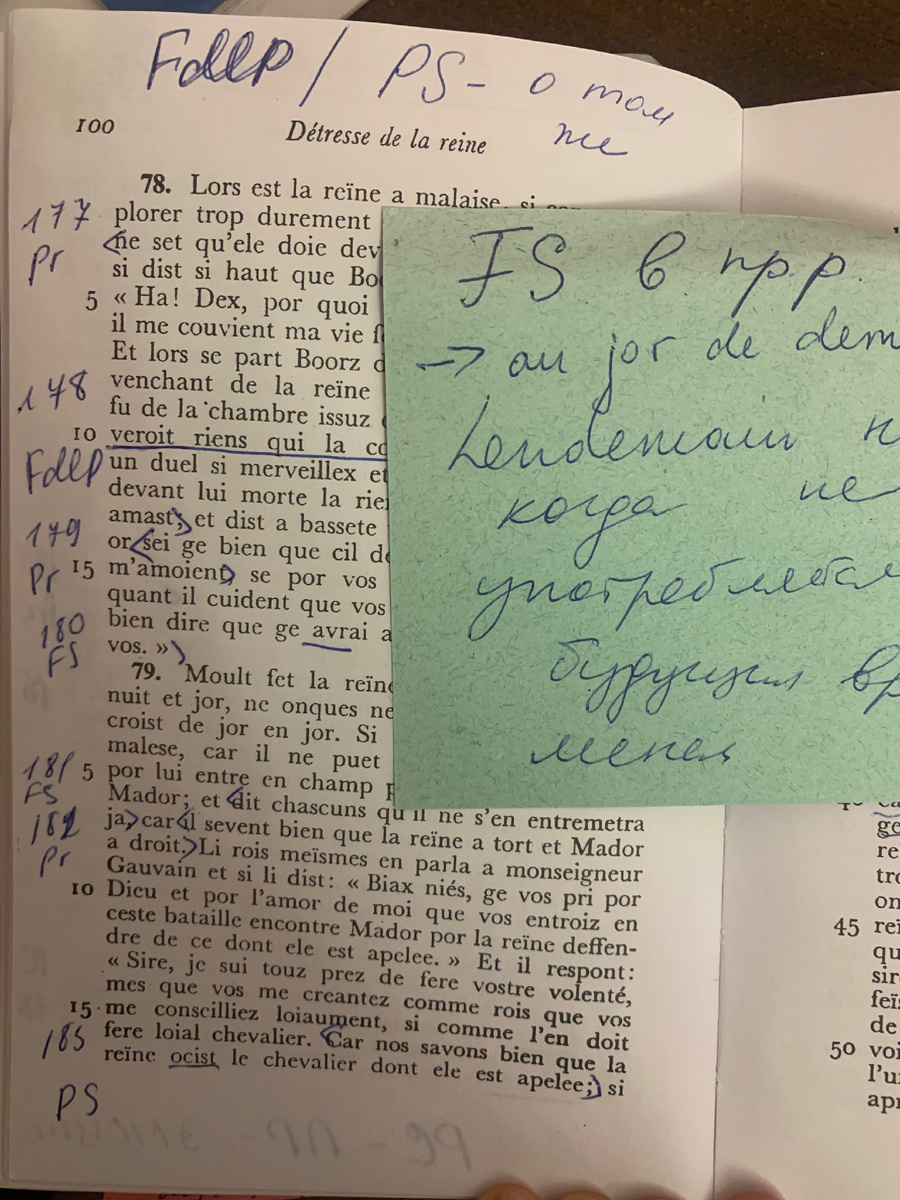 FdleP / PS - о том
же
100 Détresse de la reine
78. Lors est la reïne a malaise,
177 plorer trop durement
Pr ne set qu'ele doie dev
si dist si haut que Bo
5 « Ha! Dex, por quoi
il me couvient ma vie f
Et lors se part Boorz d
178 venchant de la reïne
fu de la chambre issuz
10 veroit riens qui la co
FdleP un duel si merveillex et
devant lui morte la rie
amast; et dist a bassete
179 or sei ge bien que cil de
Pr 15 m'amoient, se por vos
quant il cuident que vos
180 bien dire que ge avrai a
FS vos. »
79. Moult fet la reïne
nuit et jor, ne onques ne
croist de jor en jor. Si
malese, car il ne puet
181 5 por lui entre en champ p
FS Mador; et dit chascuns qu'il ne s'en entremetra
182 ja, car il sevent bien que la reïne a tort et Mador
Pr a droit. Li rois meïsmes en parla a monseigneur
Gauvain et si li dist: « Biax niés, ge vos pri por
10 Dieu et por l'amor de moi que vos entroiz en
ceste bataille encontre Mador por la reïne deffen-
dre de ce dont ele est apelee. » Et il respont:
« Sire, je sui touz prez de fere vostre volenté,
mes que vos me creantez comme rois que vos
15 me conseilliez loiaument, si comme l'en doit
183 fere loial chevalier. Car nos savons bien que la
reïne ocist le chevalier dont ele est apelee; si
PS
FS в пр.р.
→ au jor de dem
Lendemain н
когда не
употреблялся
будущия вр
менем
ge
re
tro
on
45 reï
qu
sir
feïs
de
50 voi
l'u
apr